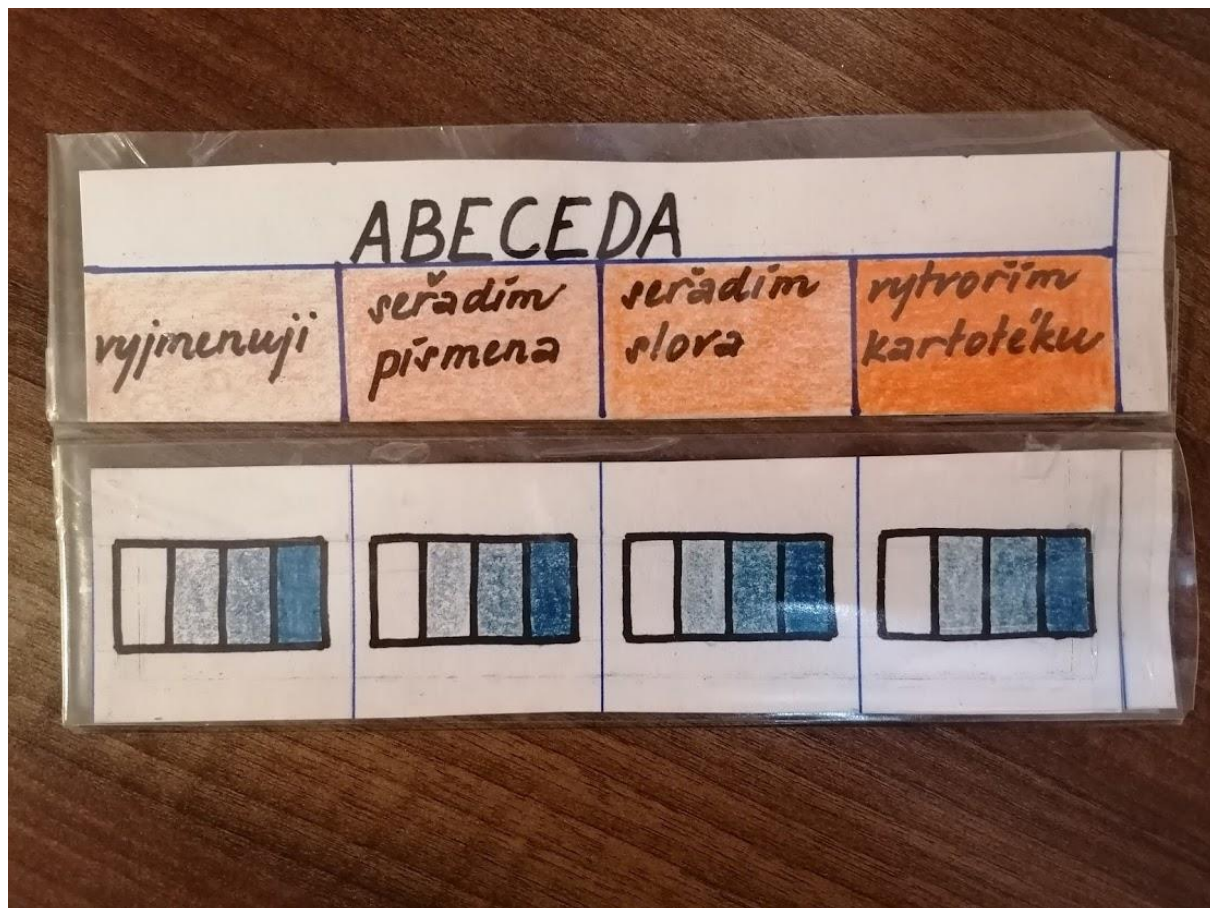 ABECEDA
vyjmenuji
seřadím
písmena
seřadím
slova
vytvořím
kartotéku